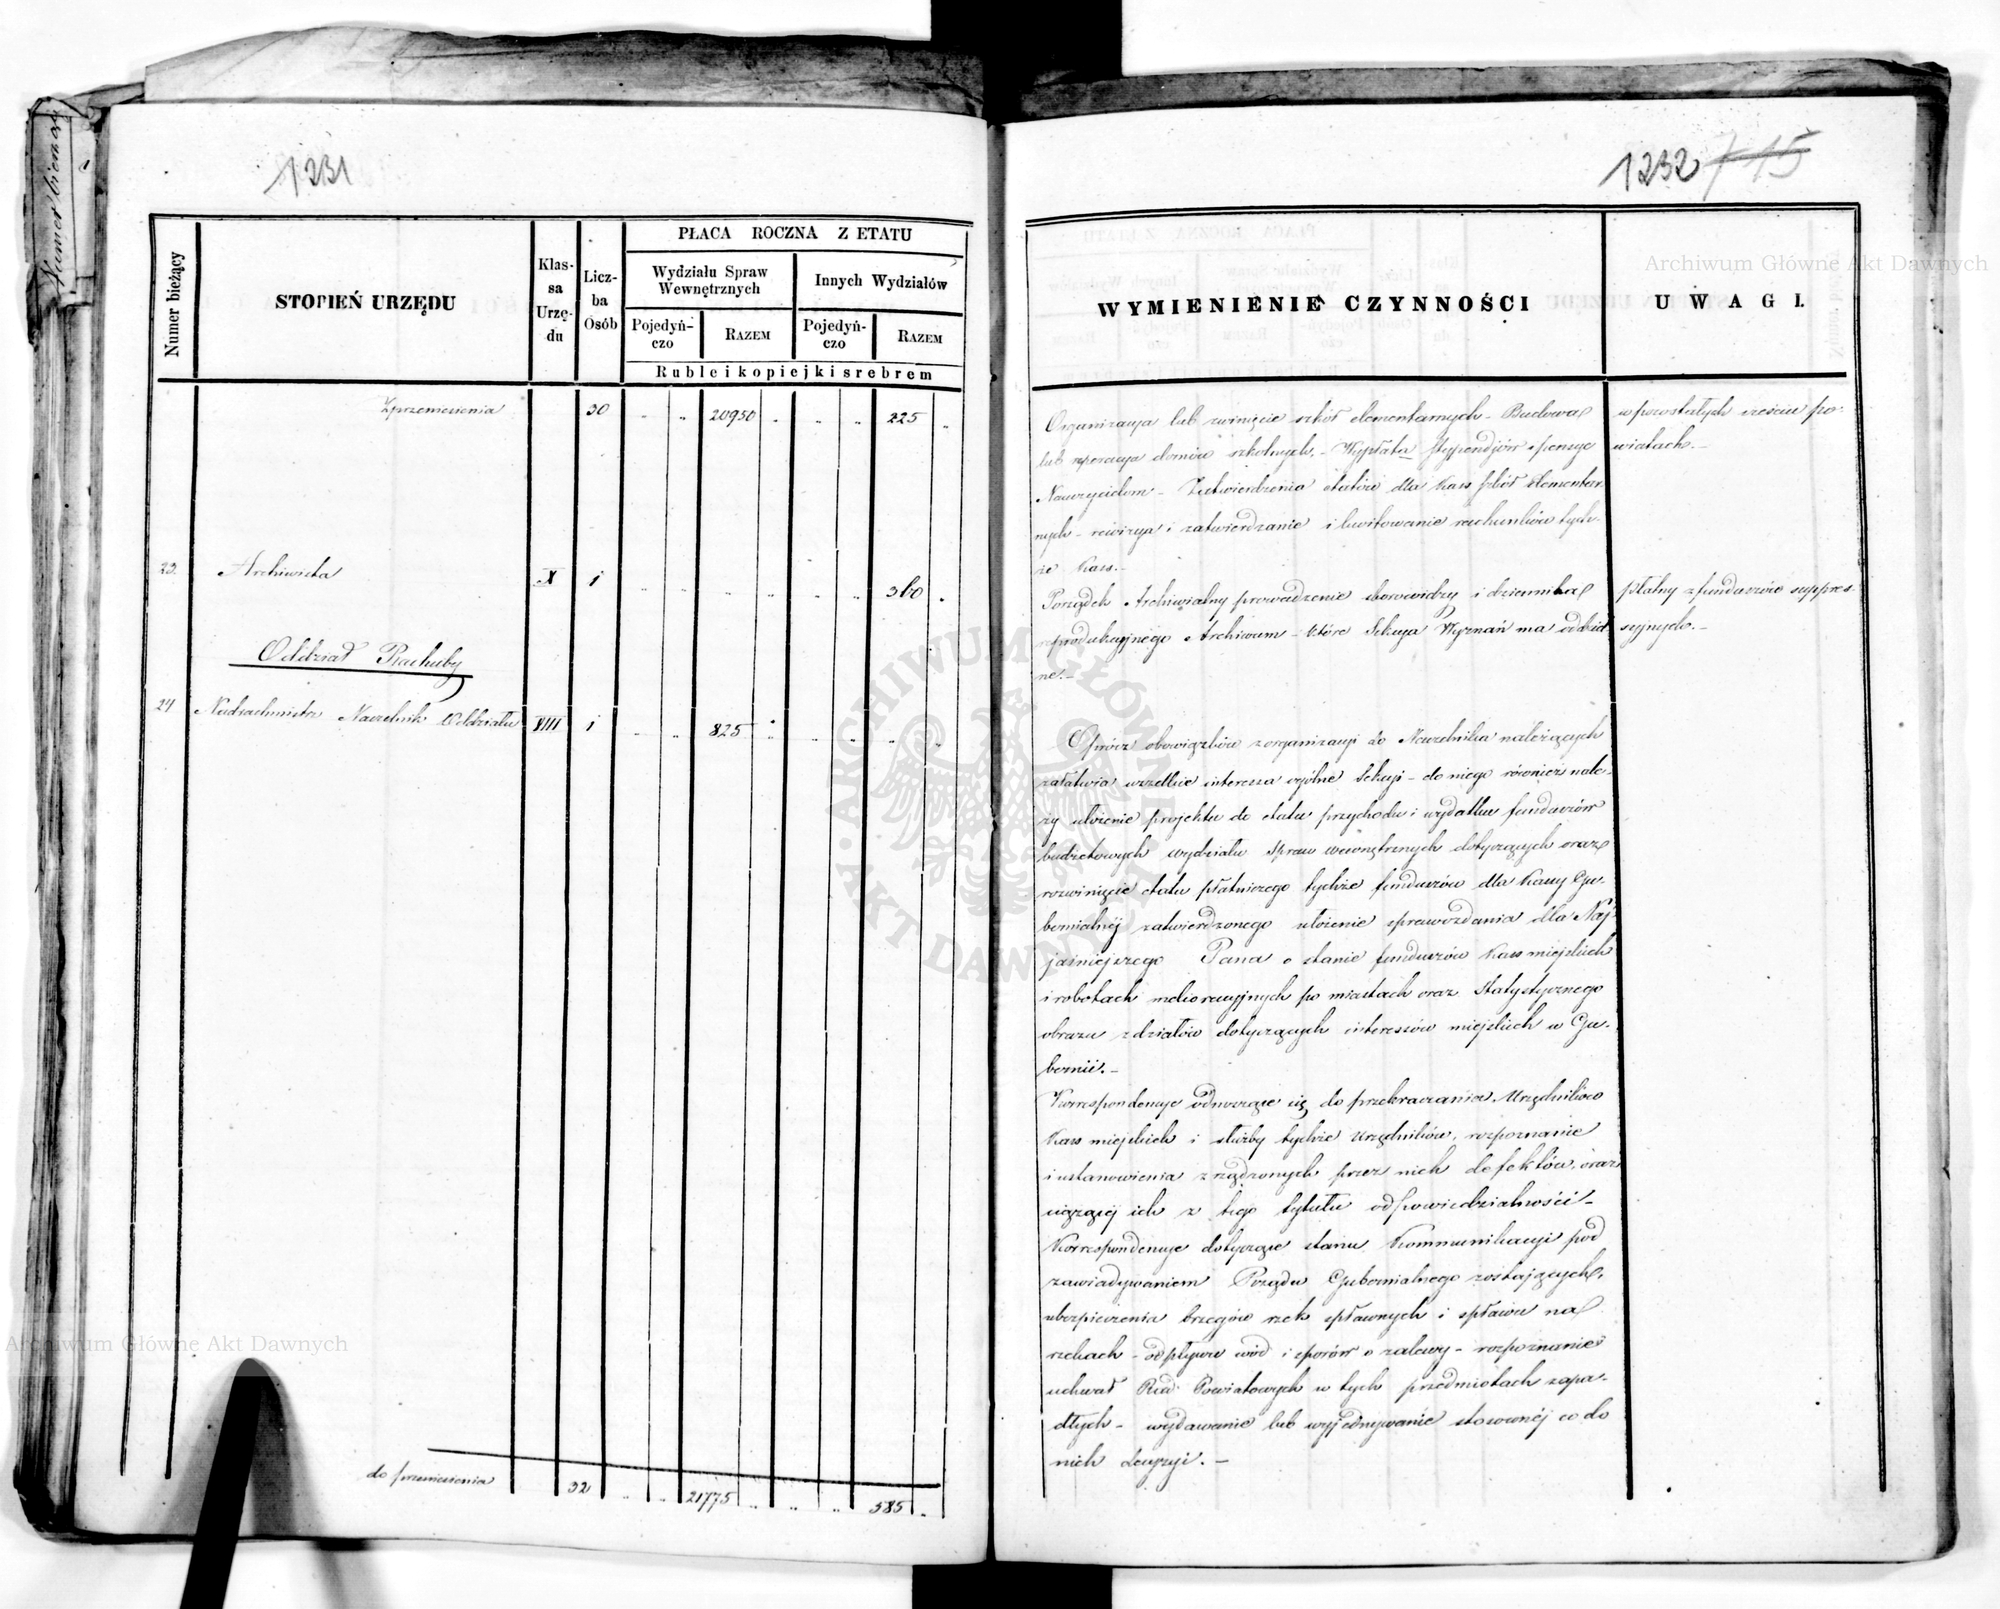 Numer bieżący
1231
Numer bieżący
STOPIEŃ URZĘDU
Klas-
sa
Urzę-
du
Licz-
ba
Osób
PŁACA ROCZNA Z ETATU
Wydziału Spraw
Wewnętrznych
Innych Wydziałów
Pojedyń-
czo
RAZEM
Pojedyń-
czo
RAZEM
Ruble i kopiejki srebrem
Zprzeniesienia 30 20950 225
23. Archiwista X 1 360
Oddział Rachuby
24 Nadrachmistrz Naczelnik Oddziału VIII 1 825
do przeniesienia 32 21775 585
1232 715
WYMIENIENIE CZYNNOŚCI
UWAGI.
Organizacya lub zwinięcie szkół elementarnych - Budowa
lub reperacya domów szkolnych. - Wypłata stypendjów i pensye
Nauczycielom - Zatwierdzenie etatów dla Kass szkół Elementar-
nych - rewizya i zatwierdzanie i kwitowanie rachunków tych-
że Kass. -
Porządek Archiwialny prowadzenie skorowidzy i dziennika
reprodukcyjnego Archiwum - które Sekcya Wyznań ma oddziel-
ne. -
Oprócz obowiązków z organizacyi do Naczelnika należących
załatwia wszelkie interessa ogólne Sekcyi - do niego również nale-
ży ułożenie projektu do etatu przychodu i wydatku funduszów
budżetowych wydziału Spraw wewnętrznych dotyczących oraz
rozwinięcie etatu płatniczego tychże funduszów dla Kassy Gu-
bernialnéj zatwierdzonego ułożenie sprawozdania dla Naj-
jaśniejszego Pana o stanie funduszów Kass miejskich
i robotach melioracyjnych po miastach oraz Statystycznego
obrazu z działów dotyczących interessów miejskich w Gu-
bernii. -
Korrespondencye odnoszące się do przekraczania Urzędników
Kass miejskich i służby tychże Urzędników, rozpoznanie
i ustanowienia zrządzonych przez nich defektów, oraz
ciążącéj ich z tego tytułu odpowiedzialności -
Korrespondencye dotyczące stanu Kommunikacyi pod
zawiadywaniem Rządu Gubernialnego zostających,
ubezpieczenia brzegów rzek spławnych i spławu na
rzekach - odpływu wód i sporów o zalewy - rozpoznanie
uchwał Rad Powiatowych w tych przedmiotach zapa-
dłych - wydawanie lub wyjednywanie stosownéj co do
nich decyzyi. -
w pozostałych sześciu po-
wiatach. -
płatny z funduszów suppres-
syjnych. -
ARCHIWUM GŁÓWNE AKT DAWNYCH
Archiwum Główne Akt Dawnych
Archiwum Główne Akt Dawnych